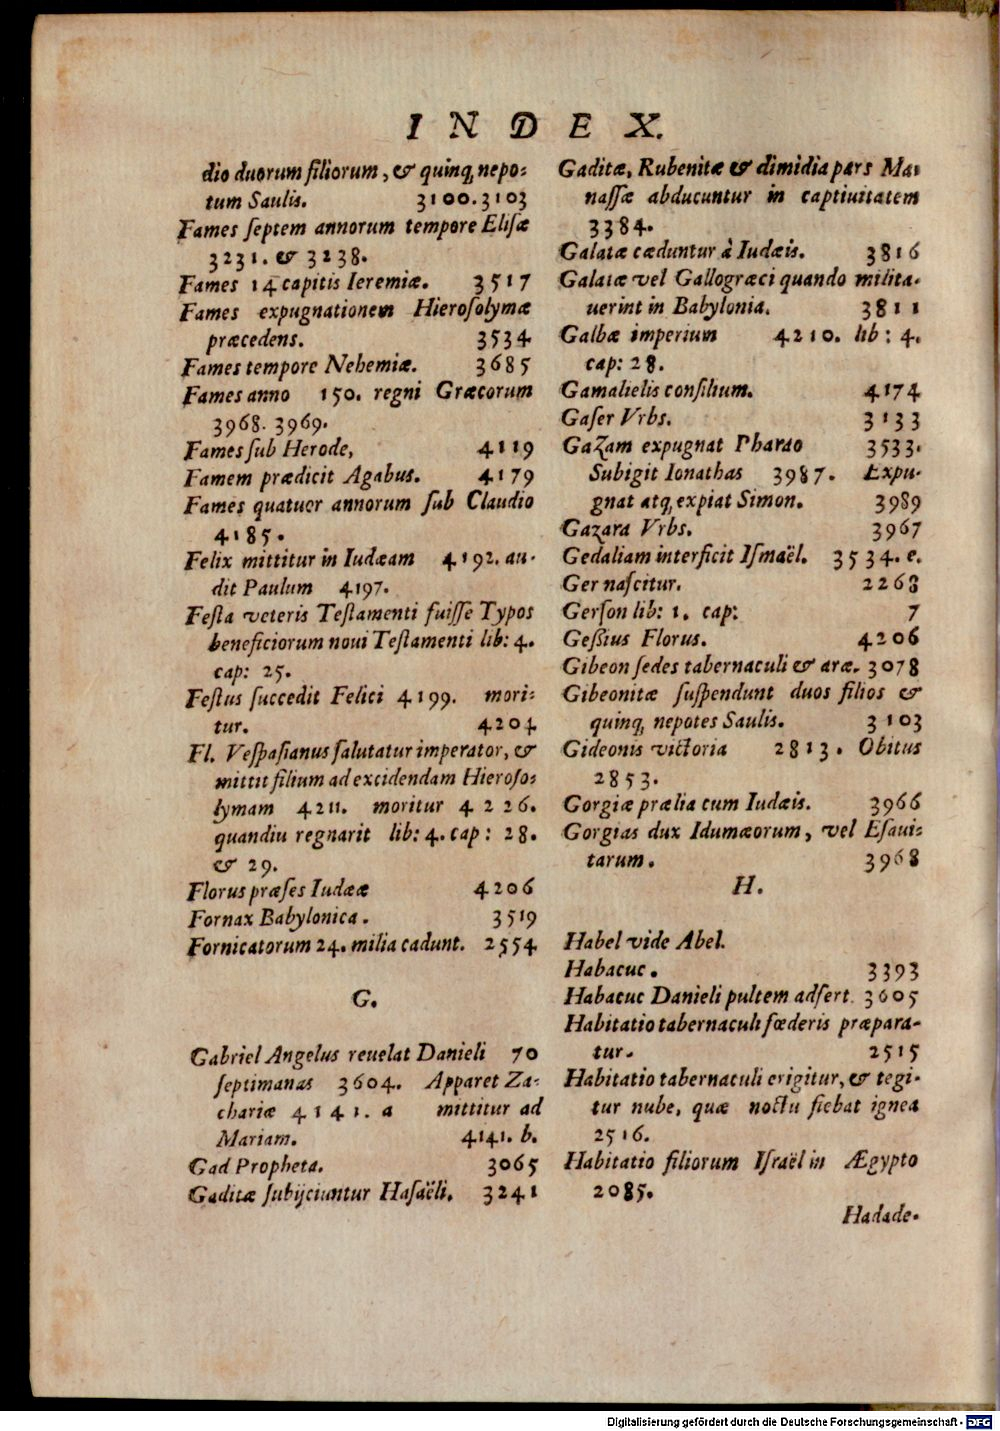 INDEX.
dio duorum filiorum, & quinq, nepo-
tum Saulis. 3100. 3103
Fames septem annorum tempore Elisæ
3231. & 3238.
Fames 14 capitis Ieremiæ. 3517
Fames expugnationem Hierosolymæ
præcedens. 3534
Fames tempore Nehemiæ. 3685
Fames anno 150. regni Græcorum
3968. 3969.
Fames sub Herode, 4119
Famem prædicit Agabus. 4179
Fames quatuor annorum sub Claudio
4185.
Felix mittitur in Iudæam 4192. au-
dit Paulum 4197.
Festa veteris Testamenti fuisse Typos
beneficiorum noui Testamenti lib: 4.
cap: 25.
Festus succedit Felici 4199. mori-
tur. 4204
Fl. Vespasianus salutatur imperator, &
mittit filium ad excidendam Hieroso-
lymam 4211. moritur 4226.
quandiu regnarit lib: 4. cap: 28.
& 29.
Florus præses Iudææ 4206
Fornax Babylonica. 3519
Fornicatorum 24. milia cadunt. 2554
G.
Gabriel Angelus reuelat Danieli 70
septimanas 3604. Apparet Za-
chariæ 4141. a mittitur ad
Mariam. 4141. b.
Gad Propheta. 3065
Gaditæ subijciuntur Hasaëli. 3241
Gaditæ, Rubenitæ & dimidia pars Ma-
nassæ abducuntur in captiuitatem
3384.
Galatæ cæduntur à Iudæis. 3816
Galatæ vel Gallogræci quando milita-
uerint in Babylonia. 3811
Galbæ imperium 4210. lib: 4.
cap: 28.
Gamalielis consilium. 4174
Gaser Vrbs. 3133
Gazam expugnat Pharao 3533.
Subigit Ionathas 3987. Expu-
gnat atq, expiat Simon. 3989
Gazara Vrbs. 3967
Gedaliam interficit Ismaël. 3534. e.
Ger nascitur. 2263
Gerson lib: 1. cap: 7
Gessius Florus. 4206
Gibeon sedes tabernaculi & aræ. 3078
Gibeonitæ suspendunt duos filios &
quinq, nepotes Saulis. 3103
Gideonis victoria 2813. Obitus
2853.
Gorgiæ prælia cum Iudæis. 3966
Gorgias dux Idumæorum, vel Esaui-
tarum. 3968
H.
Habel vide Abel.
Habacuc. 3393
Habacuc Danieli pultem adfert. 3605
Habitatio tabernaculi fœderis præpara-
tur. 2515
Habitatio tabernaculi erigitur, & tegi-
tur nube, quæ noctu fiebat ignea
2516.
Habitatio filiorum Israël in Ægypto
2085.
Hadade.
Digitalisierung gefördert durch die Deutsche Forschungsgemeinschaft - DFG